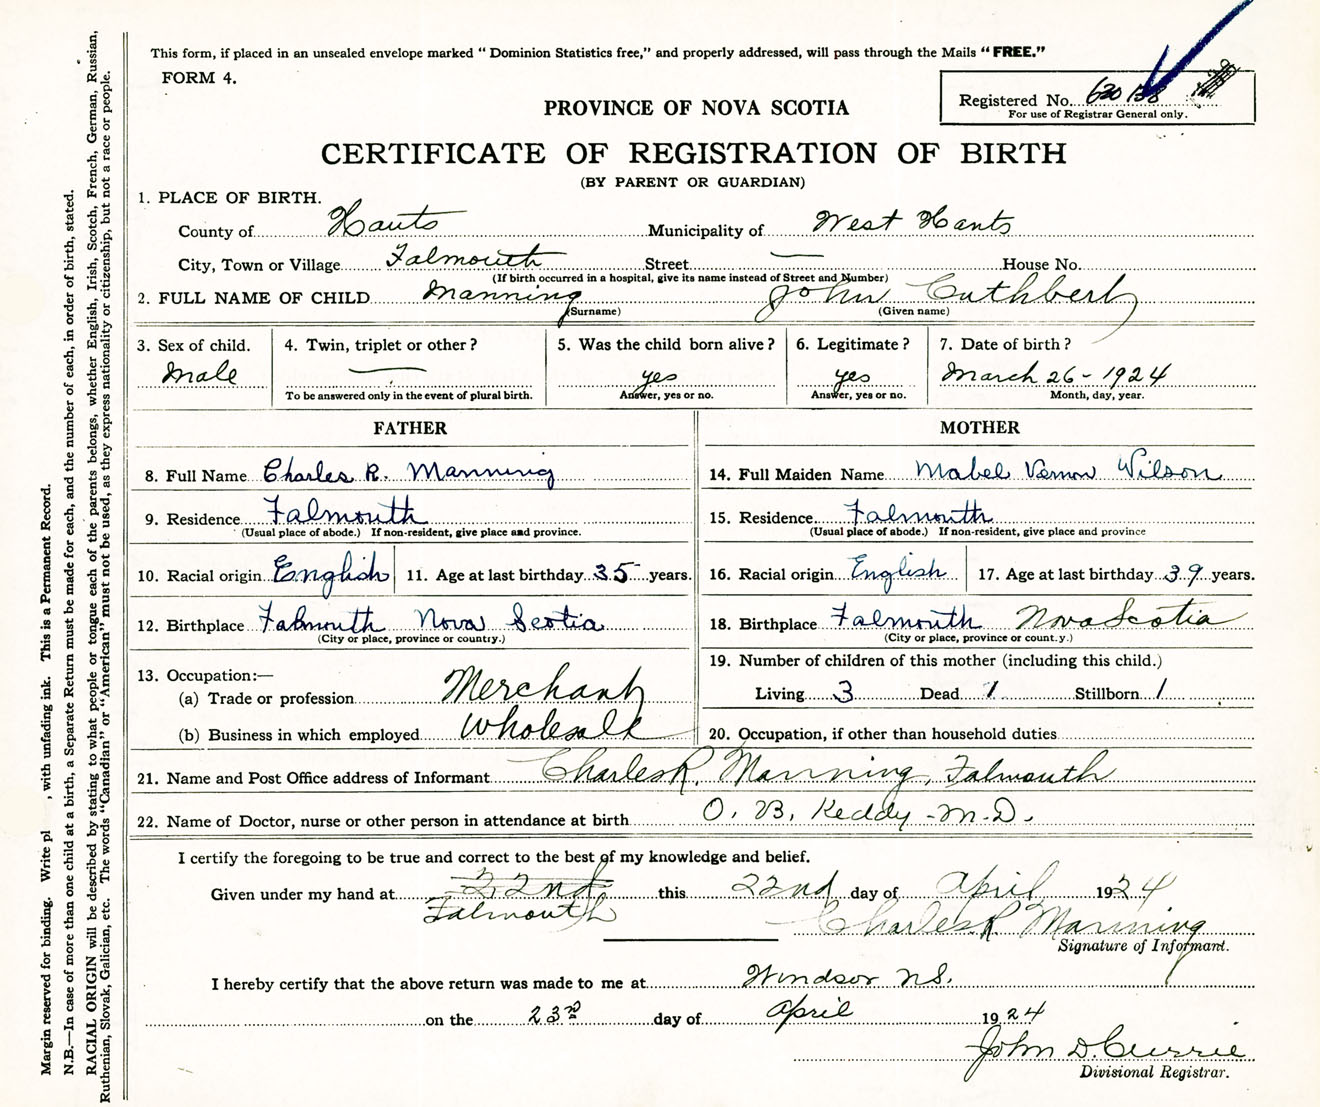 This form, if placed in an unsealed envelope marked "Dominion Statistics free," and properly addressed, will pass through the Mails "FREE."
FORM 4.
Registered No. 620 138
For use of Registrar General only.
PROVINCE OF NOVA SCOTIA
CERTIFICATE OF REGISTRATION OF BIRTH
(BY PARENT OR GUARDIAN)
1. PLACE OF BIRTH.
County of Hants Municipality of West Hants
City, Town or Village Falmouth Street — House No.
(If birth occurred in a hospital, give its name instead of Street and Number)
2. FULL NAME OF CHILD Manning John Cuthbert
(Surname) (Given name)
3. Sex of child. 4. Twin, triplet or other? 5. Was the child born alive? 6. Legitimate? 7. Date of birth?
Male — yes yes March 26 - 1924
To be answered only in the event of plural birth. Answer, yes or no. Answer, yes or no. Month, day, year.
FATHER
8. Full Name Charles R. Manning
9. Residence Falmouth
(Usual place of abode.) If non-resident, give place and province.
10. Racial origin English 11. Age at last birthday 35 years.
12. Birthplace Falmouth Nova Scotia
(City or place, province or country.)
13. Occupation:—
(a) Trade or profession Merchant
(b) Business in which employed Wholesale
MOTHER
14. Full Maiden Name Mabel Vernon Wilson
15. Residence Falmouth
(Usual place of abode.) If non-resident, give place and province
16. Racial origin English 17. Age at last birthday 39 years.
18. Birthplace Falmouth Nova Scotia
(City or place, province or count.y.)
19. Number of children of this mother (including this child.)
Living 3 Dead 1 Stillborn 1
20. Occupation, if other than household duties
21. Name and Post Office address of Informant Charles R. Manning, Falmouth
22. Name of Doctor, nurse or other person in attendance at birth O. B. Keddy - M.D.
I certify the foregoing to be true and correct to the best of my knowledge and belief.
Given under my hand at 22nd this 22nd day of April 1924
Falmouth Charles R. Manning
Signature of Informant.
I hereby certify that the above return was made to me at Windsor N.S.
on the 23rd day of April 1924
John D. Currie
Divisional Registrar.
Margin reserved for binding. Write pl , with unfading ink. This is a Permanent Record.
N.B.—In case of more than one child at a birth, a Separate Return must be made for each, and the number of each, in order of birth, stated.
RACIAL ORIGIN will be described by stating to what people or tongue each of the parents belongs, whether English, Irish, Scotch, French, German, Russian,
Ruthenian, Slovak, Galician, etc. The words "Canadian" or "American" must not be used, as they express nationality or citizenship, but not a race or people.